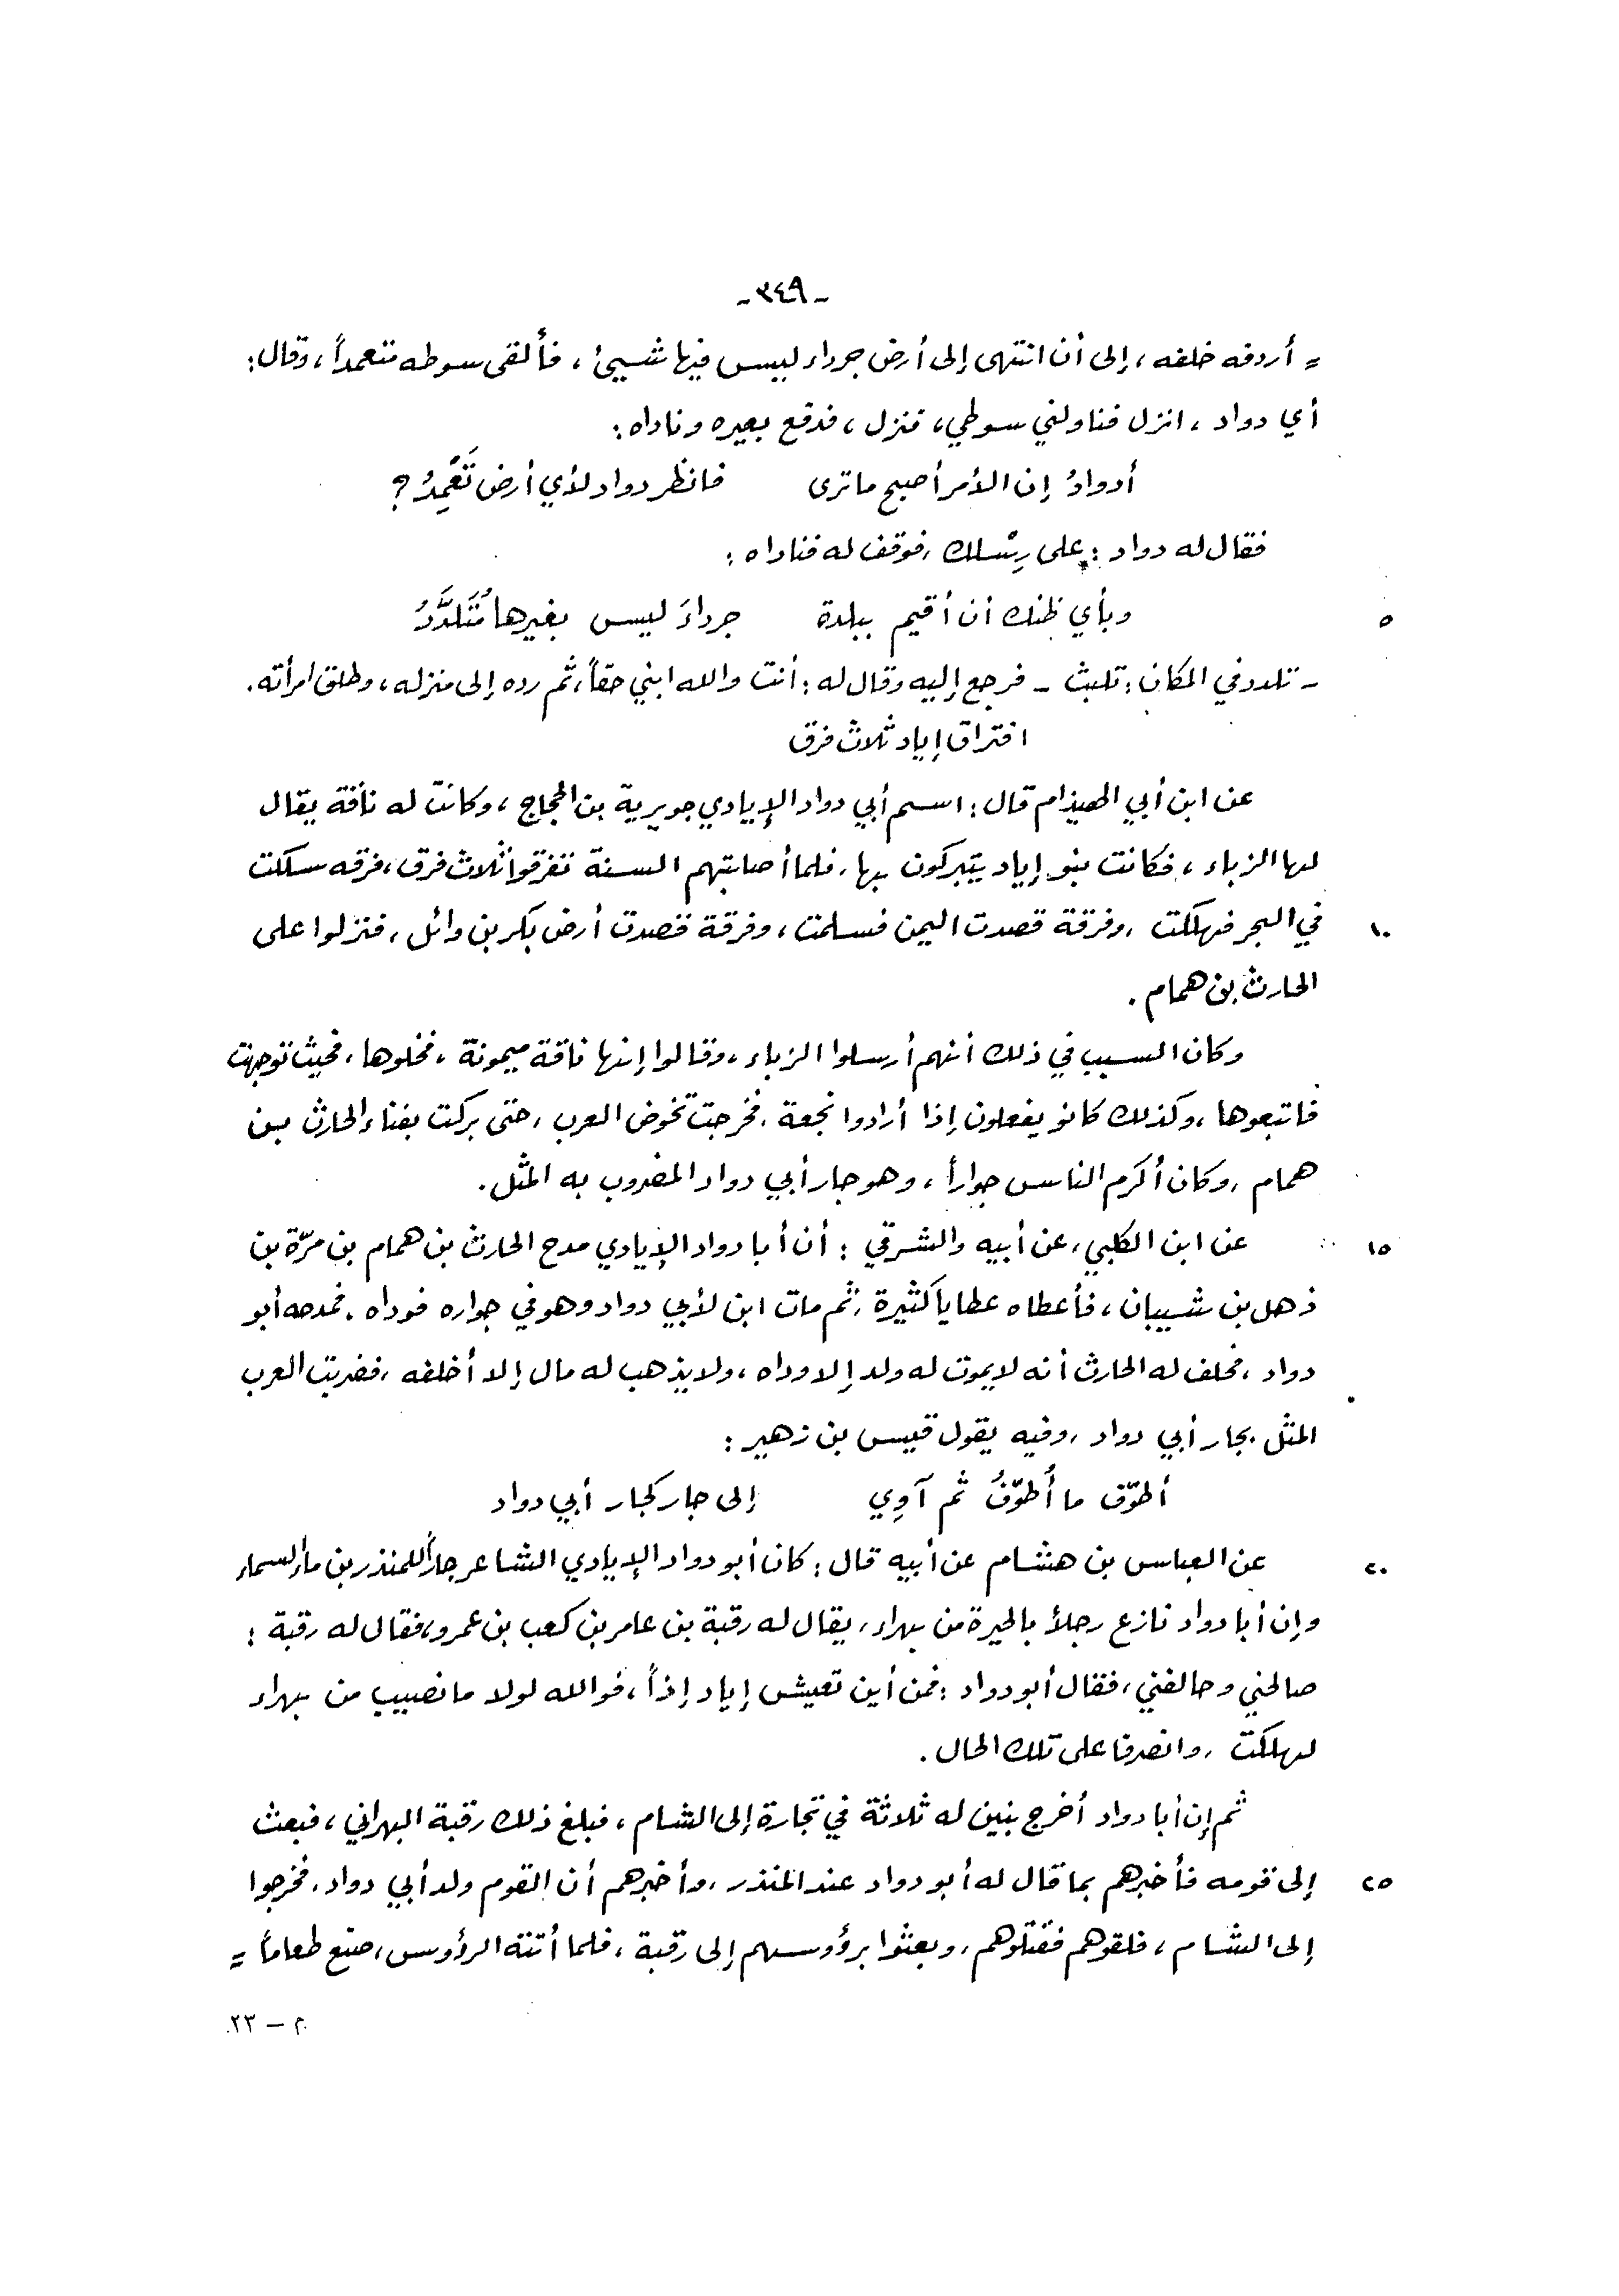 - ٣٤٩ -
= أردفه خلفه، إلى أن انتهى إلى أرض جرداء ليس فيها شيئ، فألقى سوطه متعمداً، وقال:
أي دواد، انزل فناولني سوطي، فنزل، فدفع بعيره وناداه:
أدوادُ إن الأمر أصبح ما ترى فانظر دواد لأي أرض تَعْمِدُ؟
فقال له دواد: على رِسْلك، فوقف له فناداه:
٥ وبأي ظنك أن أقيم ببلدة جرداءَ ليس بغيرها مُتَلَدَّدُ
- تلدد في المكان: تلبث - فرجع إليه وقال له: أنت والله ابني حقاً، ثم رده إلى منزله، وطلق امرأته.
افتراق إياد ثلاث فرق
عن ابن أبي الهيذام قال: اسم أبي دواد الإيادي جويرية بن الحجاج، وكانت له ناقة يقال
لها الزباء، فكانت بنو إياد يتبركون بها، فلما أصابتهم السنة تفرقوا ثلاث فرق، فرقه سلكت
١٠ في البحر فهلكت، وفرقة قصدت اليمن فسلمت، وفرقة قصدت أرض بكر بن وائل، فنزلوا على
الحارث بن همام.
وكان السبب في ذلك أنهم أرسلوا الزباء، وقالوا إنها ناقة ميمونة، فخلوها، فحيث توجهت
فاتبعوها، وكذلك كانو يفعلون إذا أرادوا نجعة، فخرجت تخوض العرب، حتى بركت بفناء الحارث بن
همام، وكان أكرم الناس جواراً، وهو جار أبي دواد المضروب به المثل.
١٥ عن ابن الكلبي، عن أبيه والشرقي: أن أبا دواد الإيادي مدح الحارث بن همام بن مرّة بن
ذهل بن شيبان، فأعطاه عطايا كثيرة، ثم مات ابن لأبي دواد وهو في جواره فوداه، فمدحه أبو
دواد، فحلف له الحارث أنه لا يموت له ولد إلا وداه، ولا يذهب له مال إلا أخلفه، فضربت العرب
المثل بجار أبي دواد، وفيه يقول قيس بن زهير:
أطوّف ما أُطوّفُ ثم آوِي إلى جار كجار أبي دواد
٢٠ عن العباس بن هشام عن أبيه قال: كان أبو دواد الإيادي الشاعر جاراً للمنذر بن ماء السماء
وإن أبا دواد نازع رجلاً بالحيرة من بهراء، يقال له رقبة بن عامر بن كعب بن عمرو، فقال له رقبة:
صالحني وحالفني، فقال أبو دواد: فمن أين تعيش إياد إذاً، فوالله لولا ما نصيب من بهراء
لهلكت، وانصرفا على تلك الحال.
ثم إن أبا دواد أخرج بنين له ثلاثة في تجارة إلى الشام، فبلغ ذلك رقبة البهراني، فبعث
٢٥ إلى قومه فأخبرهم بما قال له أبو دواد عند المنذر، وأخبرهم أن القوم ولد أبي دواد، فخرجوا
إلى الشام، فلقوهم فقتلوهم، وبعثوا برؤوسهم إلى رقبة، فلما أتته الرؤوس، صنع طعاماً =
م - ٢٣